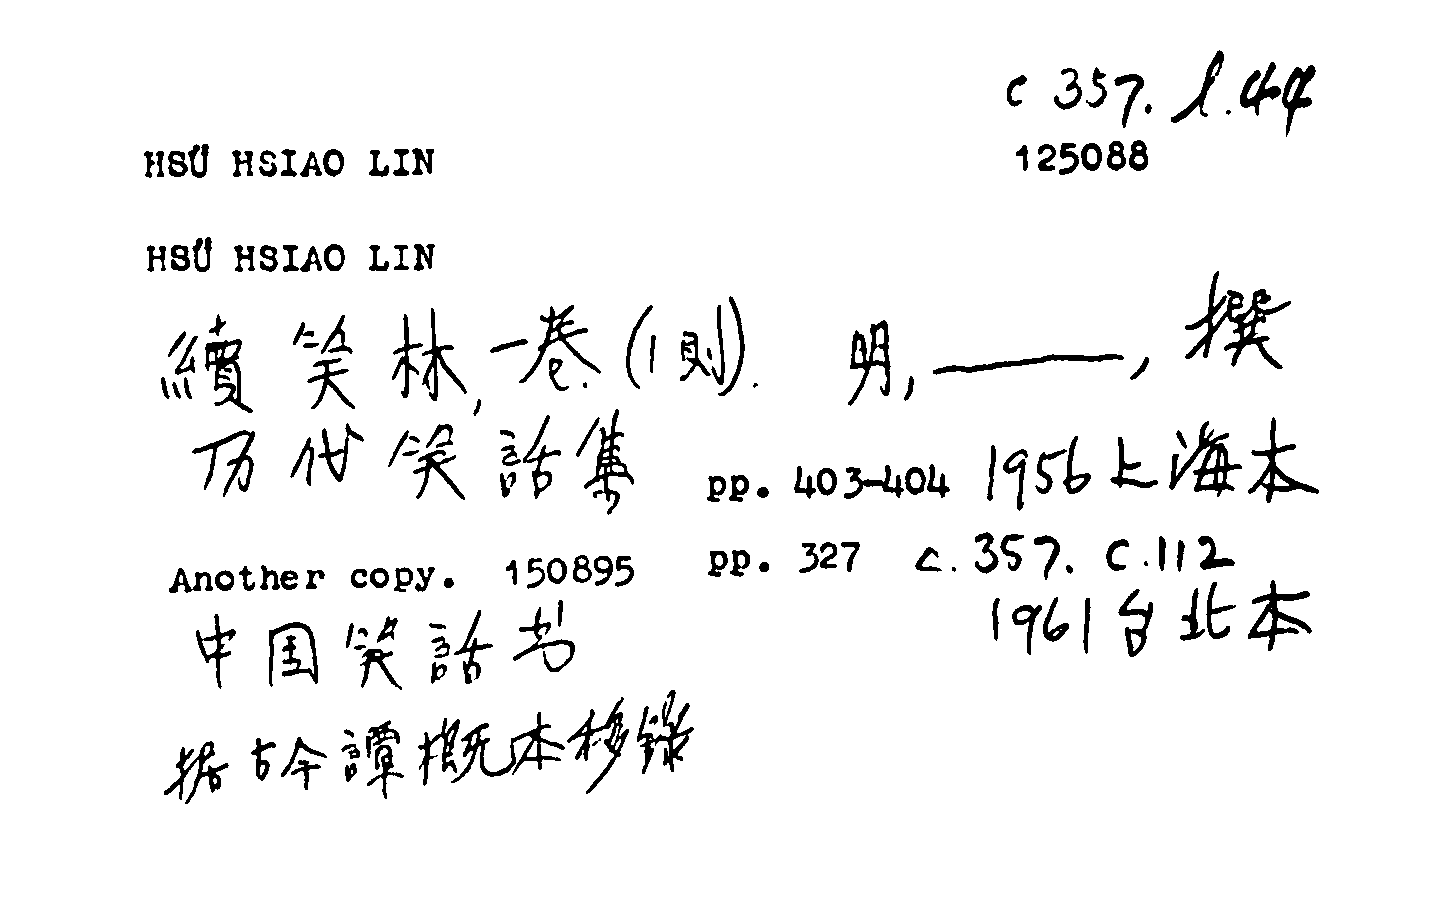 c 357. l.44
HSÜ HSIAO LIN 125088
HSÜ HSIAO LIN
續笑林,一卷.(1則). 明,———,撰
历代笑話集 pp. 403-404 1956上海本
Another copy. 150895 pp. 327 c.357.c.112
中国笑話书 1961台北本
据古今譚概本移錄